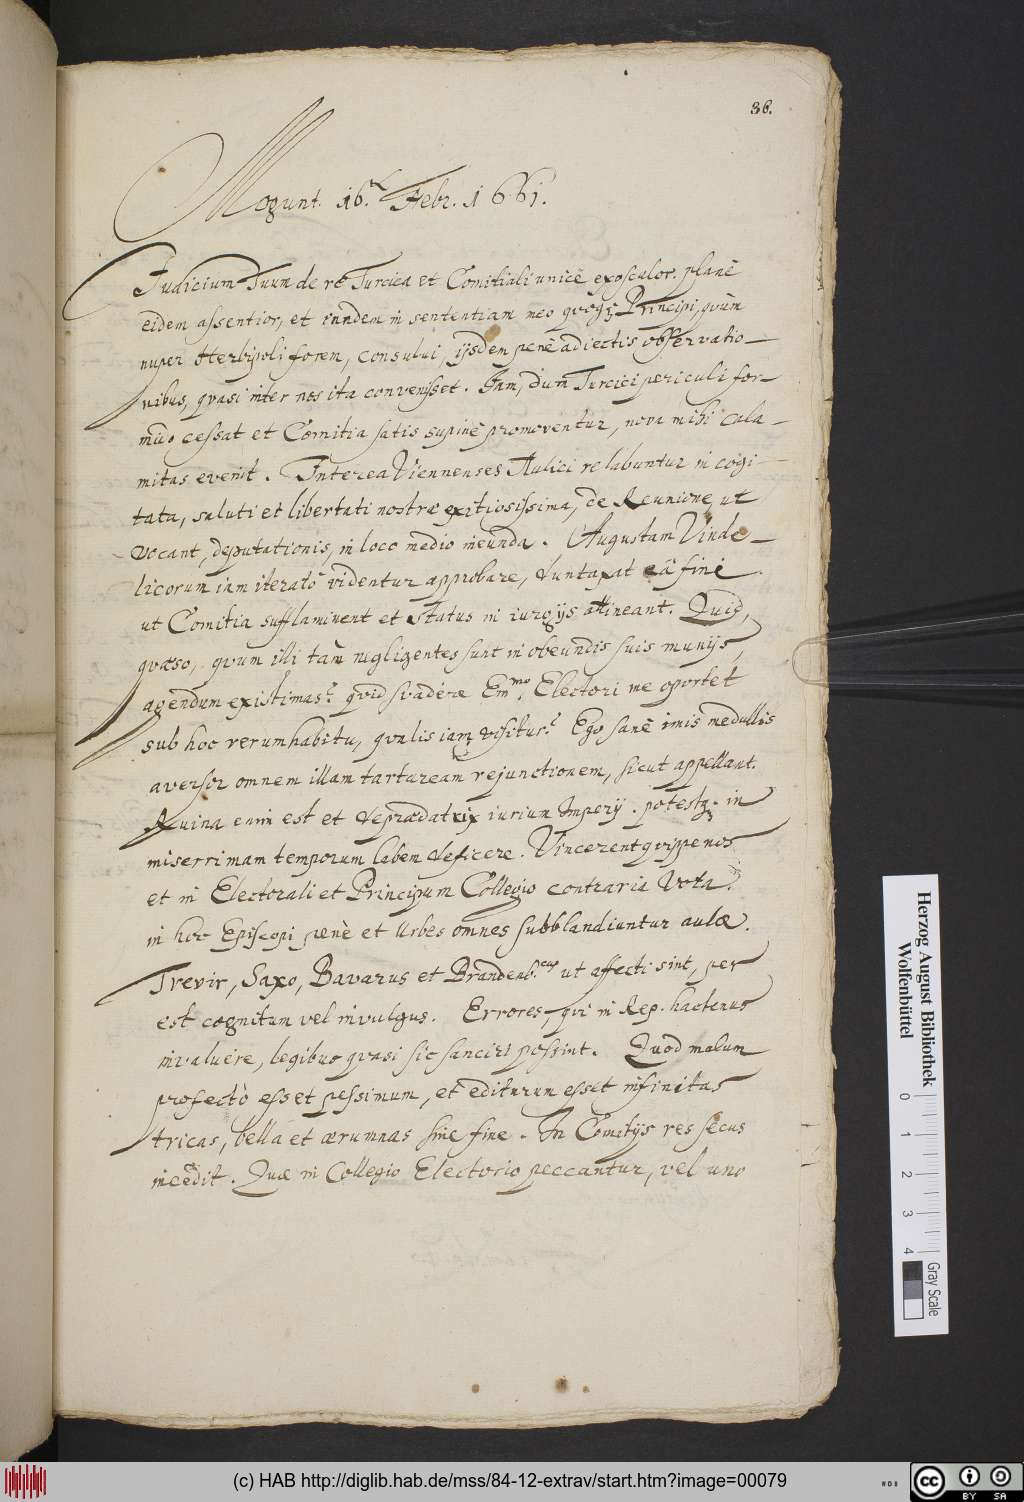 36.
Mogunt. 16. Febr. 1661.
Judicium Tuum de re Turcica et Comitiali unicè exosculor. planè
eidem assentior, et in eundem in sententiam meo quoq; Principi, qvùm
nuper Herbipoli forem, consului, ijsdem penè adiectis observatio-
nibus, qvasi inter nos ita convenisset. Iam, dum Turcici periculi for-
mido cessat et Comitia satis supinè promoventur, nova mihi cala-
mitas evenit. Interea Viennenses Aulici relabuntur in cogi-
tata, saluti et libertati nostræ exitiosissima, de Reunione, ut
vocant, deputationis, in loco medio ineunda. Augustam Vinde-
licorum iam iteratò videntur approbare, duntaxat eâ fine
ut Comitia sufflaminent et Status in iurgijs attineant. Quid,
qvæso, qvum illi tàm negligentes sunt in obeundis suis munijs,
agendum existimas? qvid svadére Em.mo Electori me oportet
sub hoc rerum habitu, qvalis iam visitur? Ego sanè imis medullis
aversor omnem illam tartaream rejunctionem, sicut appellant.
Ruina enim est et deprædatrix iurium Imperij. potestq; in
miserrimam temporum labem deficere. Vincerent qvippe nos
et in Electorali et Principum Collegio contraria Vota.
in hoc Episcopi pænè et Urbes omnes subblandiuntur aulæ.
Trevir, Saxo, Bavarus et Brandenb.cus ut affecti sint, per
est cognitum vel in vulgus. Errores, qvi in Rep. hactenus
invaluére, legibus qvasi sic sanciri possint. Quod malum
profectò esset pessimum, et editurum esset infinitas
tricas, bella et ærumnas sine fine. In Comitijs res secus
incedit. Quæ in Collegio Electorio peccantur, vel uno
Herzog August Bibliothek
Wolfenbüttel
0 1 2 3 4
Gray Scale
(c) HAB http://diglib.hab.de/mss/84-12-extrav/start.htm?image=00079
WDB
cc BY SA